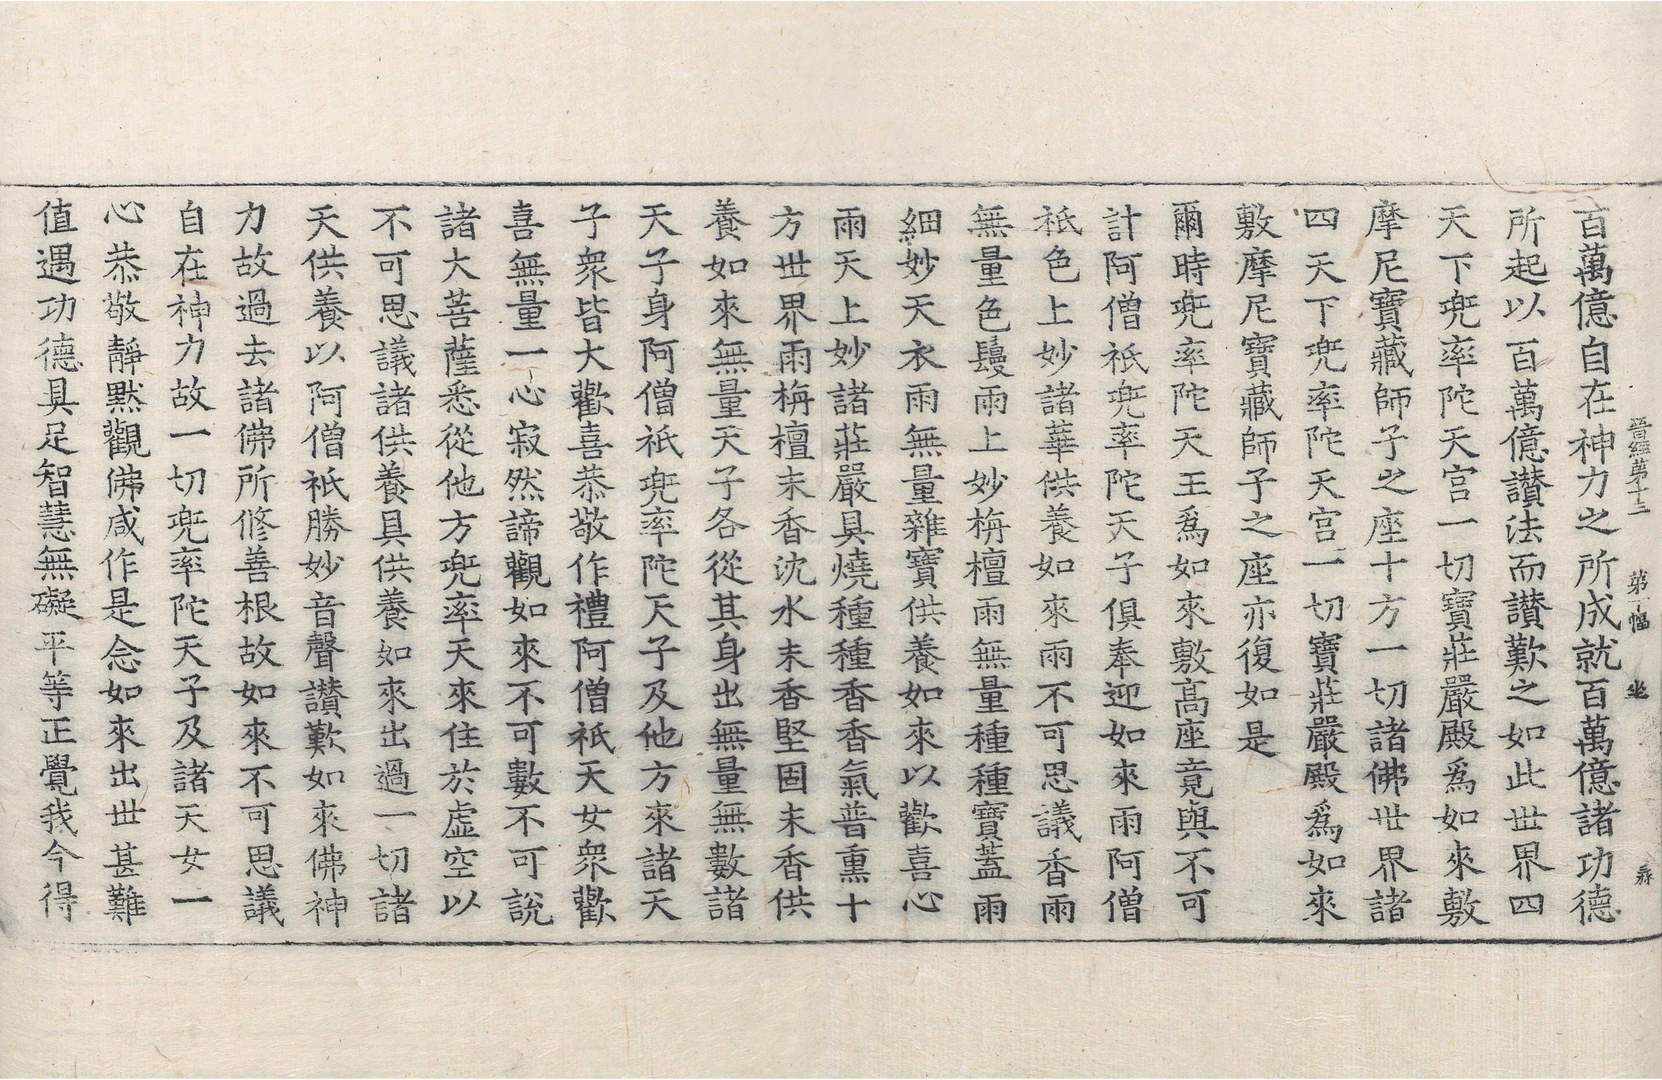 晉經第十三　第十幅　坐
百萬億自在神力之所成就百萬億諸功德
所起以百萬億讚法而讚歎之如此世界四
天下兜率陀天宮一切寶莊嚴殿爲如來敷
摩尼寶藏師子之座十方一切諸佛世界諸
四天下兜率陀天宮一切寶莊嚴殿爲如來
敷摩尼寶藏師子之座亦復如是
爾時兜率陀天王爲如來敷高座竟與不可
計阿僧祇兜率陀天子俱奉迎如來雨阿僧
祇色上妙諸華供養如來雨不可思議香雨
無量色鬘雨上妙栴檀雨無量種種寶蓋雨
細妙天衣雨無量雜寶供養如來以歡喜心
雨天上妙諸莊嚴具燒種種香香氣普熏十
方世界雨栴檀末香沈水末香堅固末香供
養如來無量天子各從其身出無量無數諸
天子身阿僧祇兜率陀天子及他方來諸天
子衆皆大歡喜恭敬作禮阿僧祇天女衆歡
喜無量一心寂然諦觀如來不可數不可說
諸大菩薩悉從他方兜率天來住於虛空以
不可思議諸供養具供養如來出過一切諸
天供養以阿僧祇勝妙音聲讚歎如來佛神
力故過去諸佛所修善根故如來不可思議
自在神力故一切兜率陀天子及諸天女一
心恭敬靜默觀佛咸作是念如來出世甚難
值遇功德具足智慧無礙平等正覺我今得